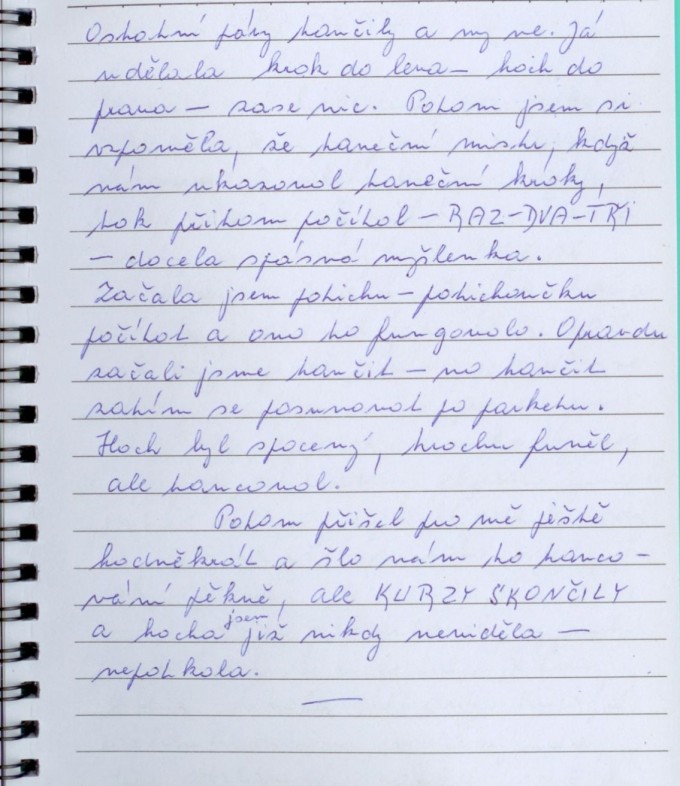 Ostatní páry tančily a my ne. Já
udělala krok do leva – hoch do
prava – zase nic. Potom jsem si
vzpoměla, že taneční mistr, když
nám ukazoval taneční kroky,
tak přitom počítal – RAZ-DVA-TŘI
– docela spásná myšlenka.
Začala jsem potichu – potichoučku
počítat a ono to fungovalo. Opravdu
začali jsme tančit – no tančit
zatím se posunovat po parketu.
Hoch byl spocený, trochu funěl,
ale tancoval.
Potom přišel pro mě ještě
hodněkrát a šlo nám to tanco-
vání pěkně, ale KURZY SKONČILY
a hocha jsem již nikdy neviděla –
nepotkala.